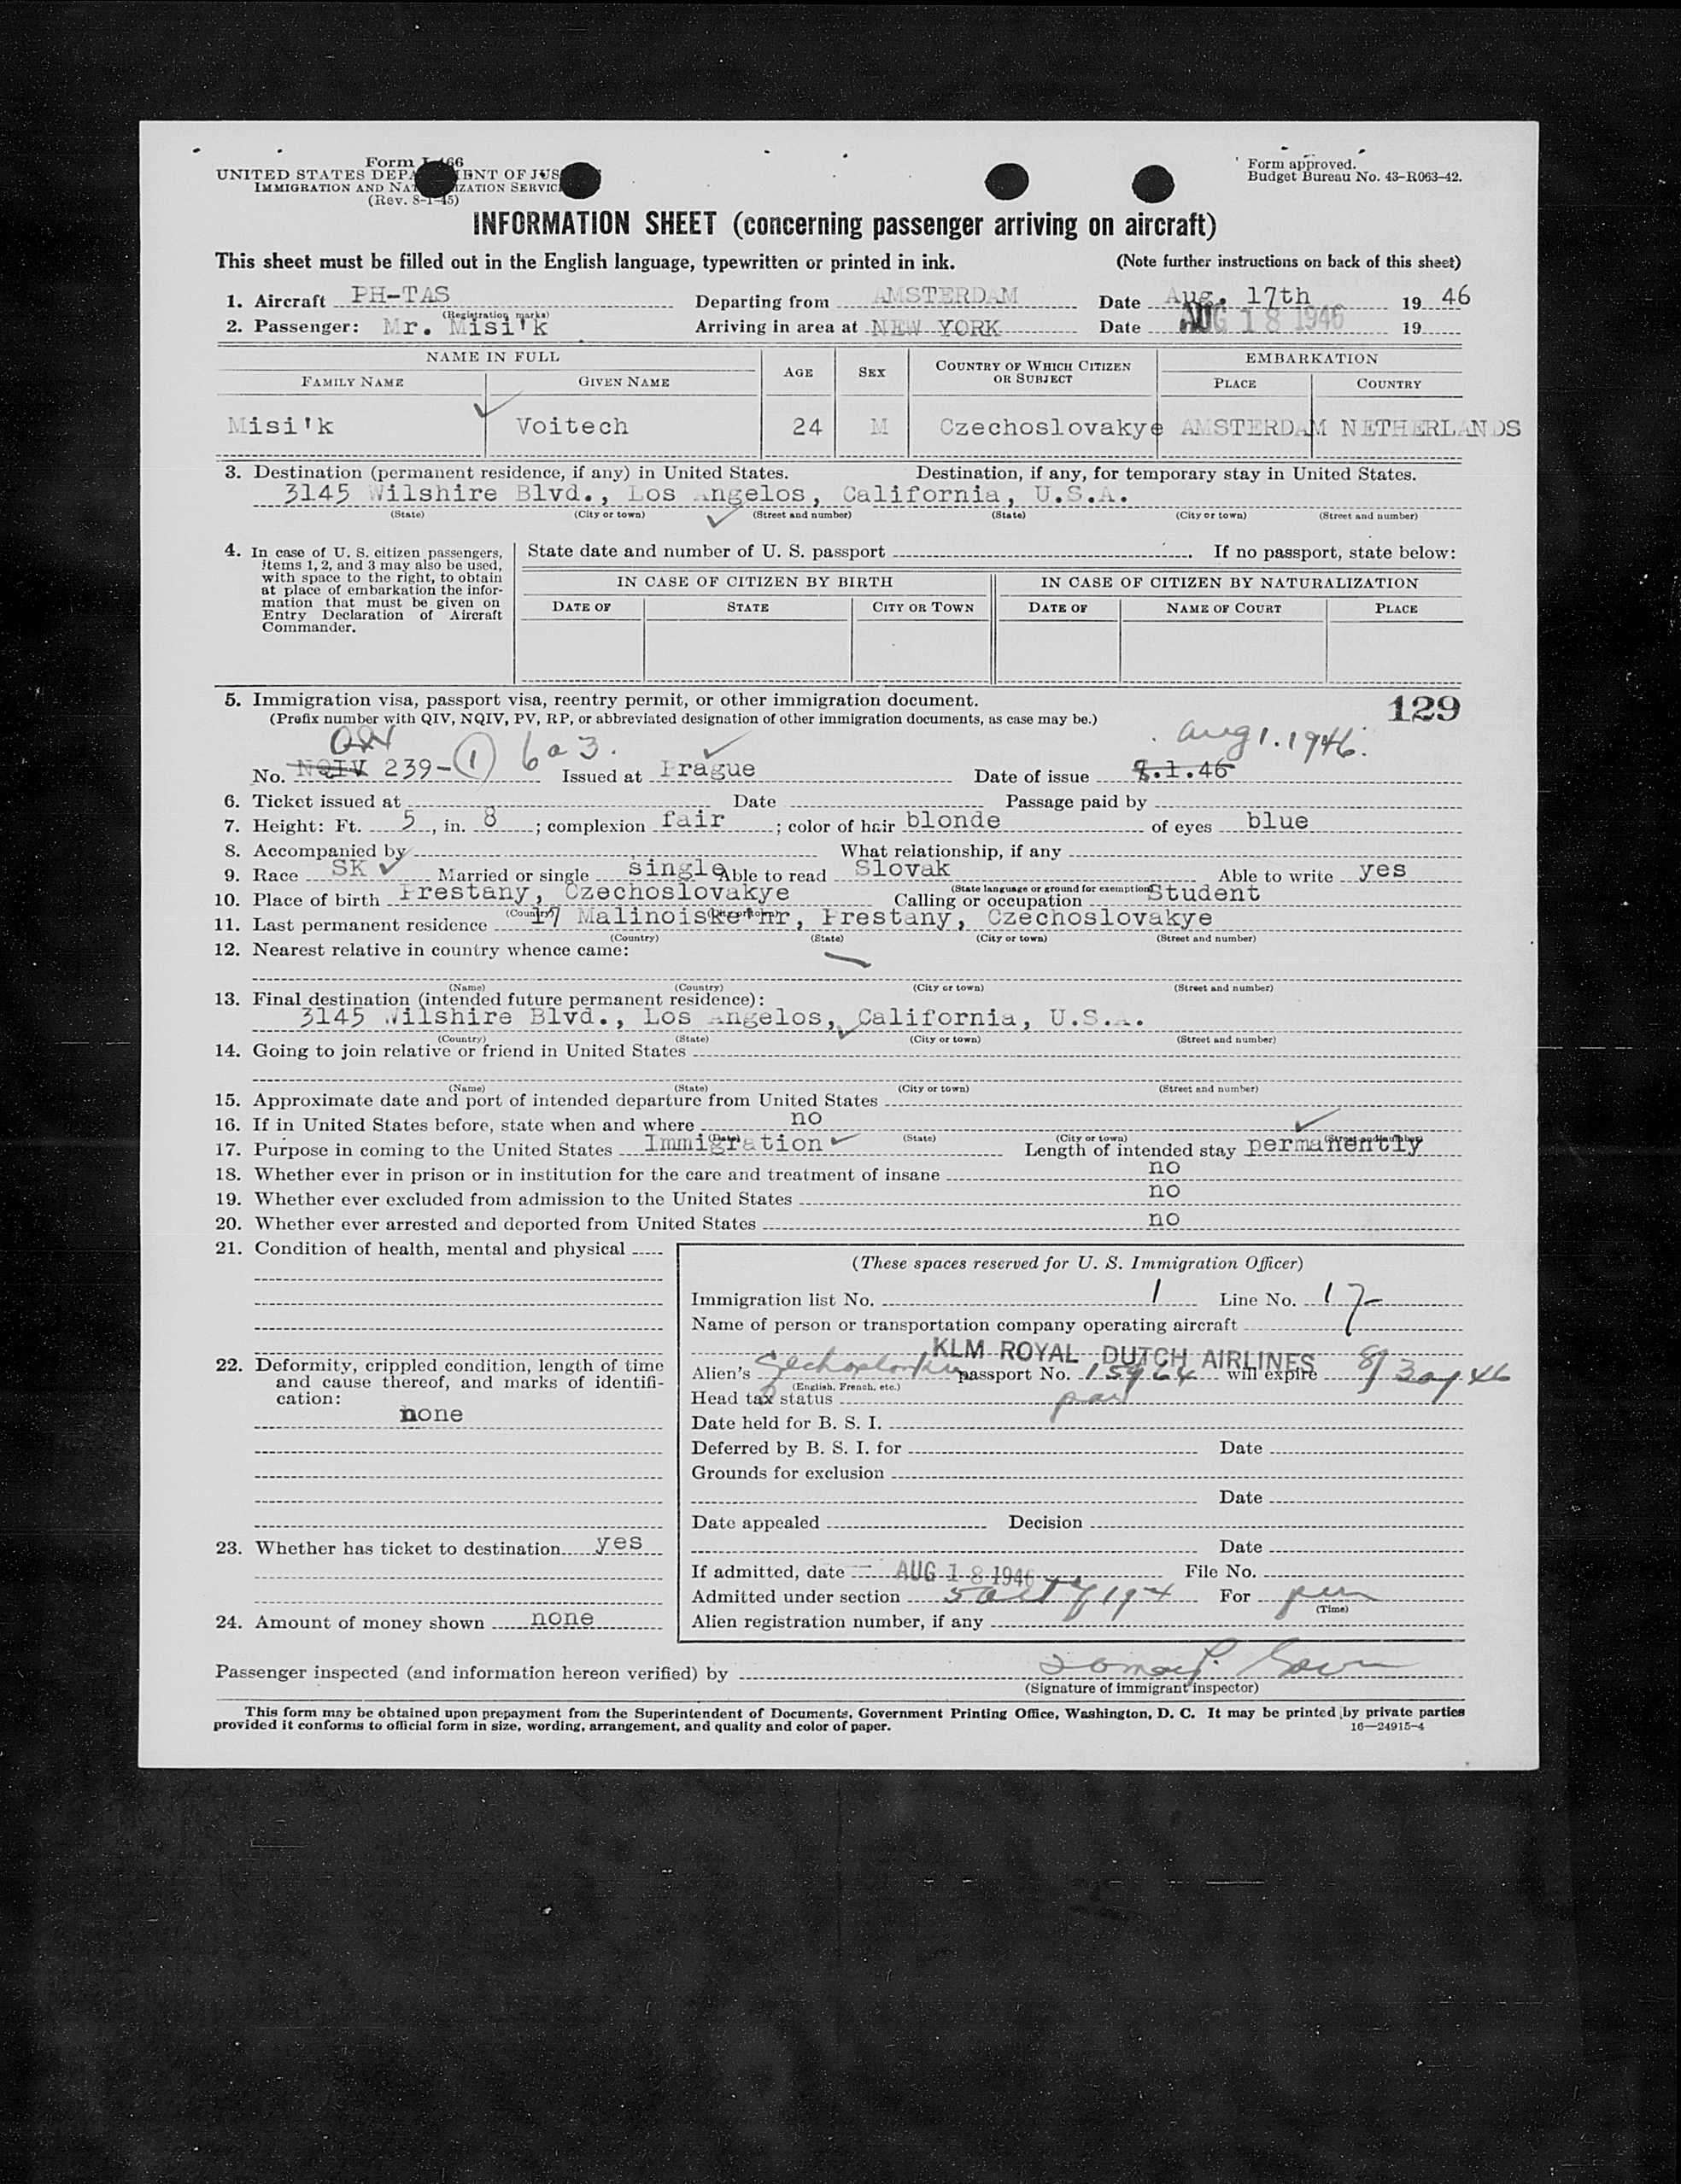 Form I-466
UNITED STATES DEPARTMENT OF JUSTICE
IMMIGRATION AND NATURALIZATION SERVICE
(Rev. 8-1-45)
Form approved.
Budget Bureau No. 43-R063-42.
INFORMATION SHEET (concerning passenger arriving on aircraft)
This sheet must be filled out in the English language, typewritten or printed in ink. (Note further instructions on back of this sheet)
1. Aircraft PH-TAS Departing from AMSTERDAM Date Aug. 17th 19 46
(Registration marks)
2. Passenger: Mr. Misi'k Arriving in area at NEW YORK Date AUG 18 1946 19
NAME IN FULL AGE SEX COUNTRY OF WHICH CITIZEN OR SUBJECT EMBARKATION
FAMILY NAME GIVEN NAME PLACE COUNTRY
Misi'k Voitech 24 M Czechoslovakye AMSTERDAM NETHERLANDS
3. Destination (permanent residence, if any) in United States. Destination, if any, for temporary stay in United States.
3145 Wilshire Blvd., Los Angelos, California, U.S.A.
(State) (City or town) (Street and number) (State) (City or town) (Street and number)
4. In case of U. S. citizen passengers, items 1, 2, and 3 may also be used, with space to the right, to obtain at place of embarkation the information that must be given on Entry Declaration of Aircraft Commander.
State date and number of U. S. passport If no passport, state below:
IN CASE OF CITIZEN BY BIRTH IN CASE OF CITIZEN BY NATURALIZATION
DATE OF STATE CITY OR TOWN DATE OF NAME OF COURT PLACE
5. Immigration visa, passport visa, reentry permit, or other immigration document. 129
(Prefix number with QIV, NQIV, PV, RP, or abbreviated designation of other immigration documents, as case may be.)
6a3. Aug 1. 1946.
No. NQIV 239-(1) Issued at Prague Date of issue 8.1.46
6. Ticket issued at Date Passage paid by
7. Height: Ft. 5, in. 8; complexion fair; color of hair blonde of eyes blue
8. Accompanied by What relationship, if any
9. Race SK Married or single single Able to read Slovak Able to write yes
(State language or ground for exemption)
10. Place of birth Prestany, Czechoslovakye Calling or occupation Student
(Country) (City or town)
11. Last permanent residence 17 Malinoiske nr, Prestany, Czechoslovakye
(Country) (State) (City or town) (Street and number)
12. Nearest relative in country whence came:
(Name) (Country) (City or town) (Street and number)
13. Final destination (intended future permanent residence):
3145 Wilshire Blvd., Los Angelos, California, U.S.A.
(Country) (State) (City or town) (Street and number)
14. Going to join relative or friend in United States
(Name) (State) (City or town) (Street and number)
15. Approximate date and port of intended departure from United States
16. If in United States before, state when and where no
(Date) (State) (City or town) (Street and number)
17. Purpose in coming to the United States Immigration Length of intended stay permanently
18. Whether ever in prison or in institution for the care and treatment of insane no
19. Whether ever excluded from admission to the United States no
20. Whether ever arrested and deported from United States no
21. Condition of health, mental and physical
22. Deformity, crippled condition, length of time and cause thereof, and marks of identification:
none
23. Whether has ticket to destination yes
24. Amount of money shown none
(These spaces reserved for U. S. Immigration Officer)
Immigration list No. 1 Line No. 17
Name of person or transportation company operating aircraft
KLM ROYAL DUTCH AIRLINES
Alien's passport No. 15964 will expire
(English, French, etc.)
Head tax status
Date held for B. S. I.
Deferred by B. S. I. for Date
Grounds for exclusion
Date
Date appealed Decision
Date
If admitted, date AUG 18 1946 File No.
Admitted under section For per
(Time)
Alien registration number, if any
Passenger inspected (and information hereon verified) by
(Signature of immigrant inspector)
This form may be obtained upon prepayment from the Superintendent of Documents, Government Printing Office, Washington, D. C. It may be printed by private parties
provided it conforms to official form in size, wording, arrangement, and quality and color of paper. 16—24915-4